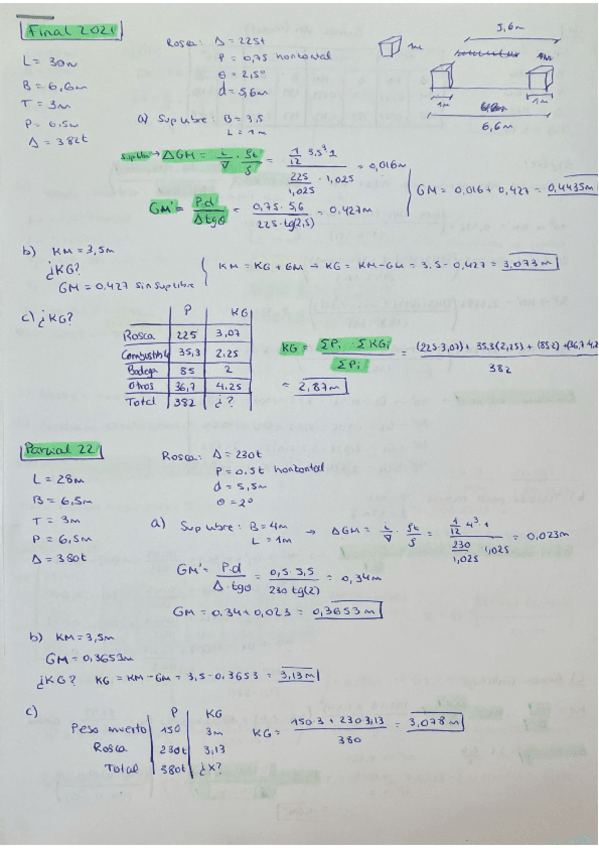 Final 2021
L = 30m
B = 6,6m
T = 3m
P = 6.5m
Δ = 382t
Rosca: Δ = 225t
P = 0,75 horizontal
θ = 2,5°
d = 5,6m
a) Sup Libre: B = 3,5
L = 1m
1m
5,6m
1m 1m
6,6m
Sup Libre → ΔGM = i/∇ · ρL/ρ = (1/12 3,5³ 1)/(225/1,025 · 1,025) = 0,016m
GM' = P.d/Δ tgθ = 0,75 · 5,6/225 · tg(2,5) = 0,427m
GM = 0,016 + 0,427 = 0,4435m
b) KM = 3,5m
¿KG?
GM = 0,427 sin sup libre
KM = KG + GM → KG = KM - GM = 3.5 - 0,427 = 3,073m
c) ¿KG?
P KG
Rosca 225 3,07
Combustible 35,3 2.25
Bodega 85 2
Otros 36,7 4.25
Total 382 ¿?
KG = ΣPi · ΣKGi / ΣPi = (225·3,07) + 35.3(2,25) + (85·2) + (36,7·4.2 / 382
= 2,87m
Parcial 22
L = 28m
B = 6,5m
T = 3m
P = 6,5m
Δ = 380t
Rosca: Δ = 230t
P = 0,5t horizontal
d = 5,5m
θ = 2°
a) Sup Libre: B = 4m
L = 1m
→ ΔGM = i/∇ · ρL/ρ = (1/12 4³ 1)/(230/1,025 · 1,025) = 0,023m
GM' = P.d/Δ · tgθ = 0,5 · 5,5/230 tg(2) = 0,34m
GM = 0.34 + 0,023 = 0,3653m
b) KM = 3,5m
GM = 0,3653m
¿KG? KG = KM - GM = 3,5 - 0,3653 = 3,13m
c)
P KG
Peso muerto 150 3m
Rosca 230t 3,13
Total 380t ¿x?
KG = 150 3 + 230 3,13 / 380 = 3,078m